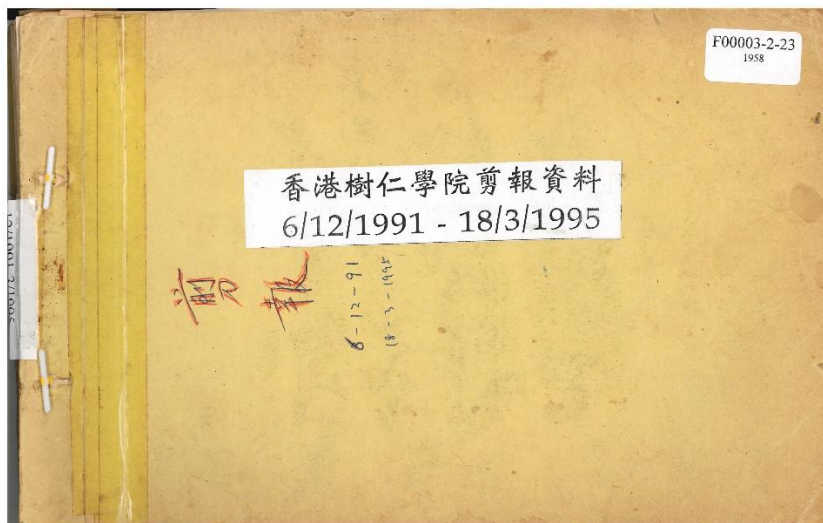 F00003-2-23
1958
香港樹仁學院剪報資料
6/12/1991 - 18/3/1995
剪報
6-12-91
18-3-1995
12/1991-3/1995